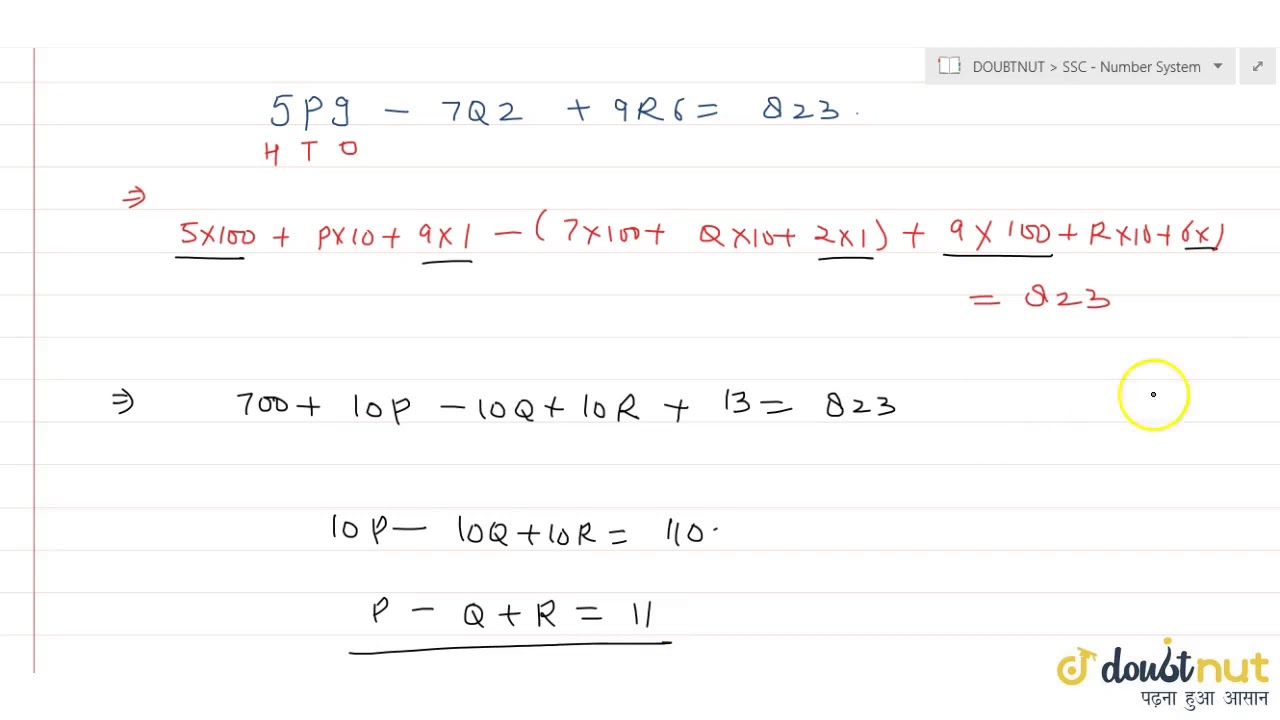 DOUBTNUT > SSC - Number System
5P9 - 7Q2 + 9R6 = 823.
H T O
⇒
5×100 + P×10 + 9×1 - (7×100 + Q×10 + 2×1) + 9×100 + R×10 + 6×1
= 823
⇒ 700 + 10P - 10Q + 10R + 13 = 823
10P - 10Q + 10R = 110.
P - Q + R = 11
doubtnut
पढ़ना हुआ आसान